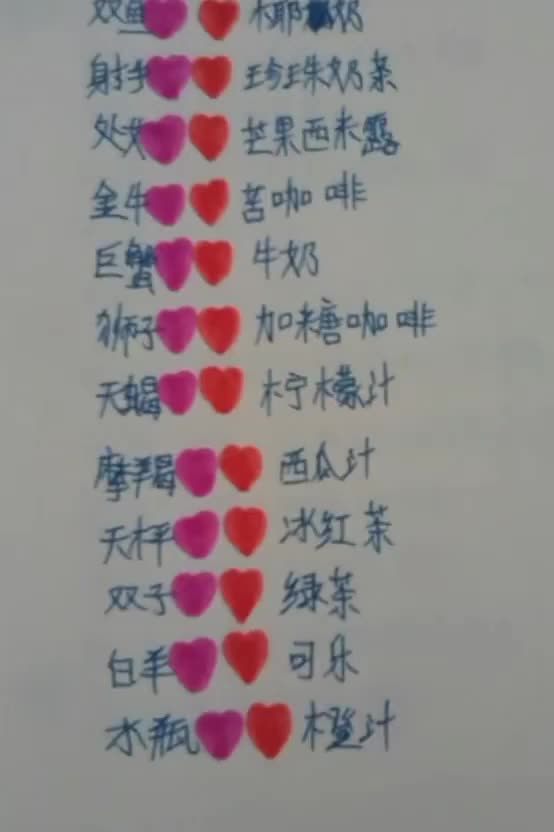 双鱼 椰奶
射手 珍珠奶茶
处女 芒果西米露
金牛 苦咖啡
巨蟹 牛奶
狮子 加糖咖啡
天蝎 柠檬汁
摩羯 西瓜汁
天枰 冰红茶
双子 绿茶
白羊 可乐
水瓶 橙汁